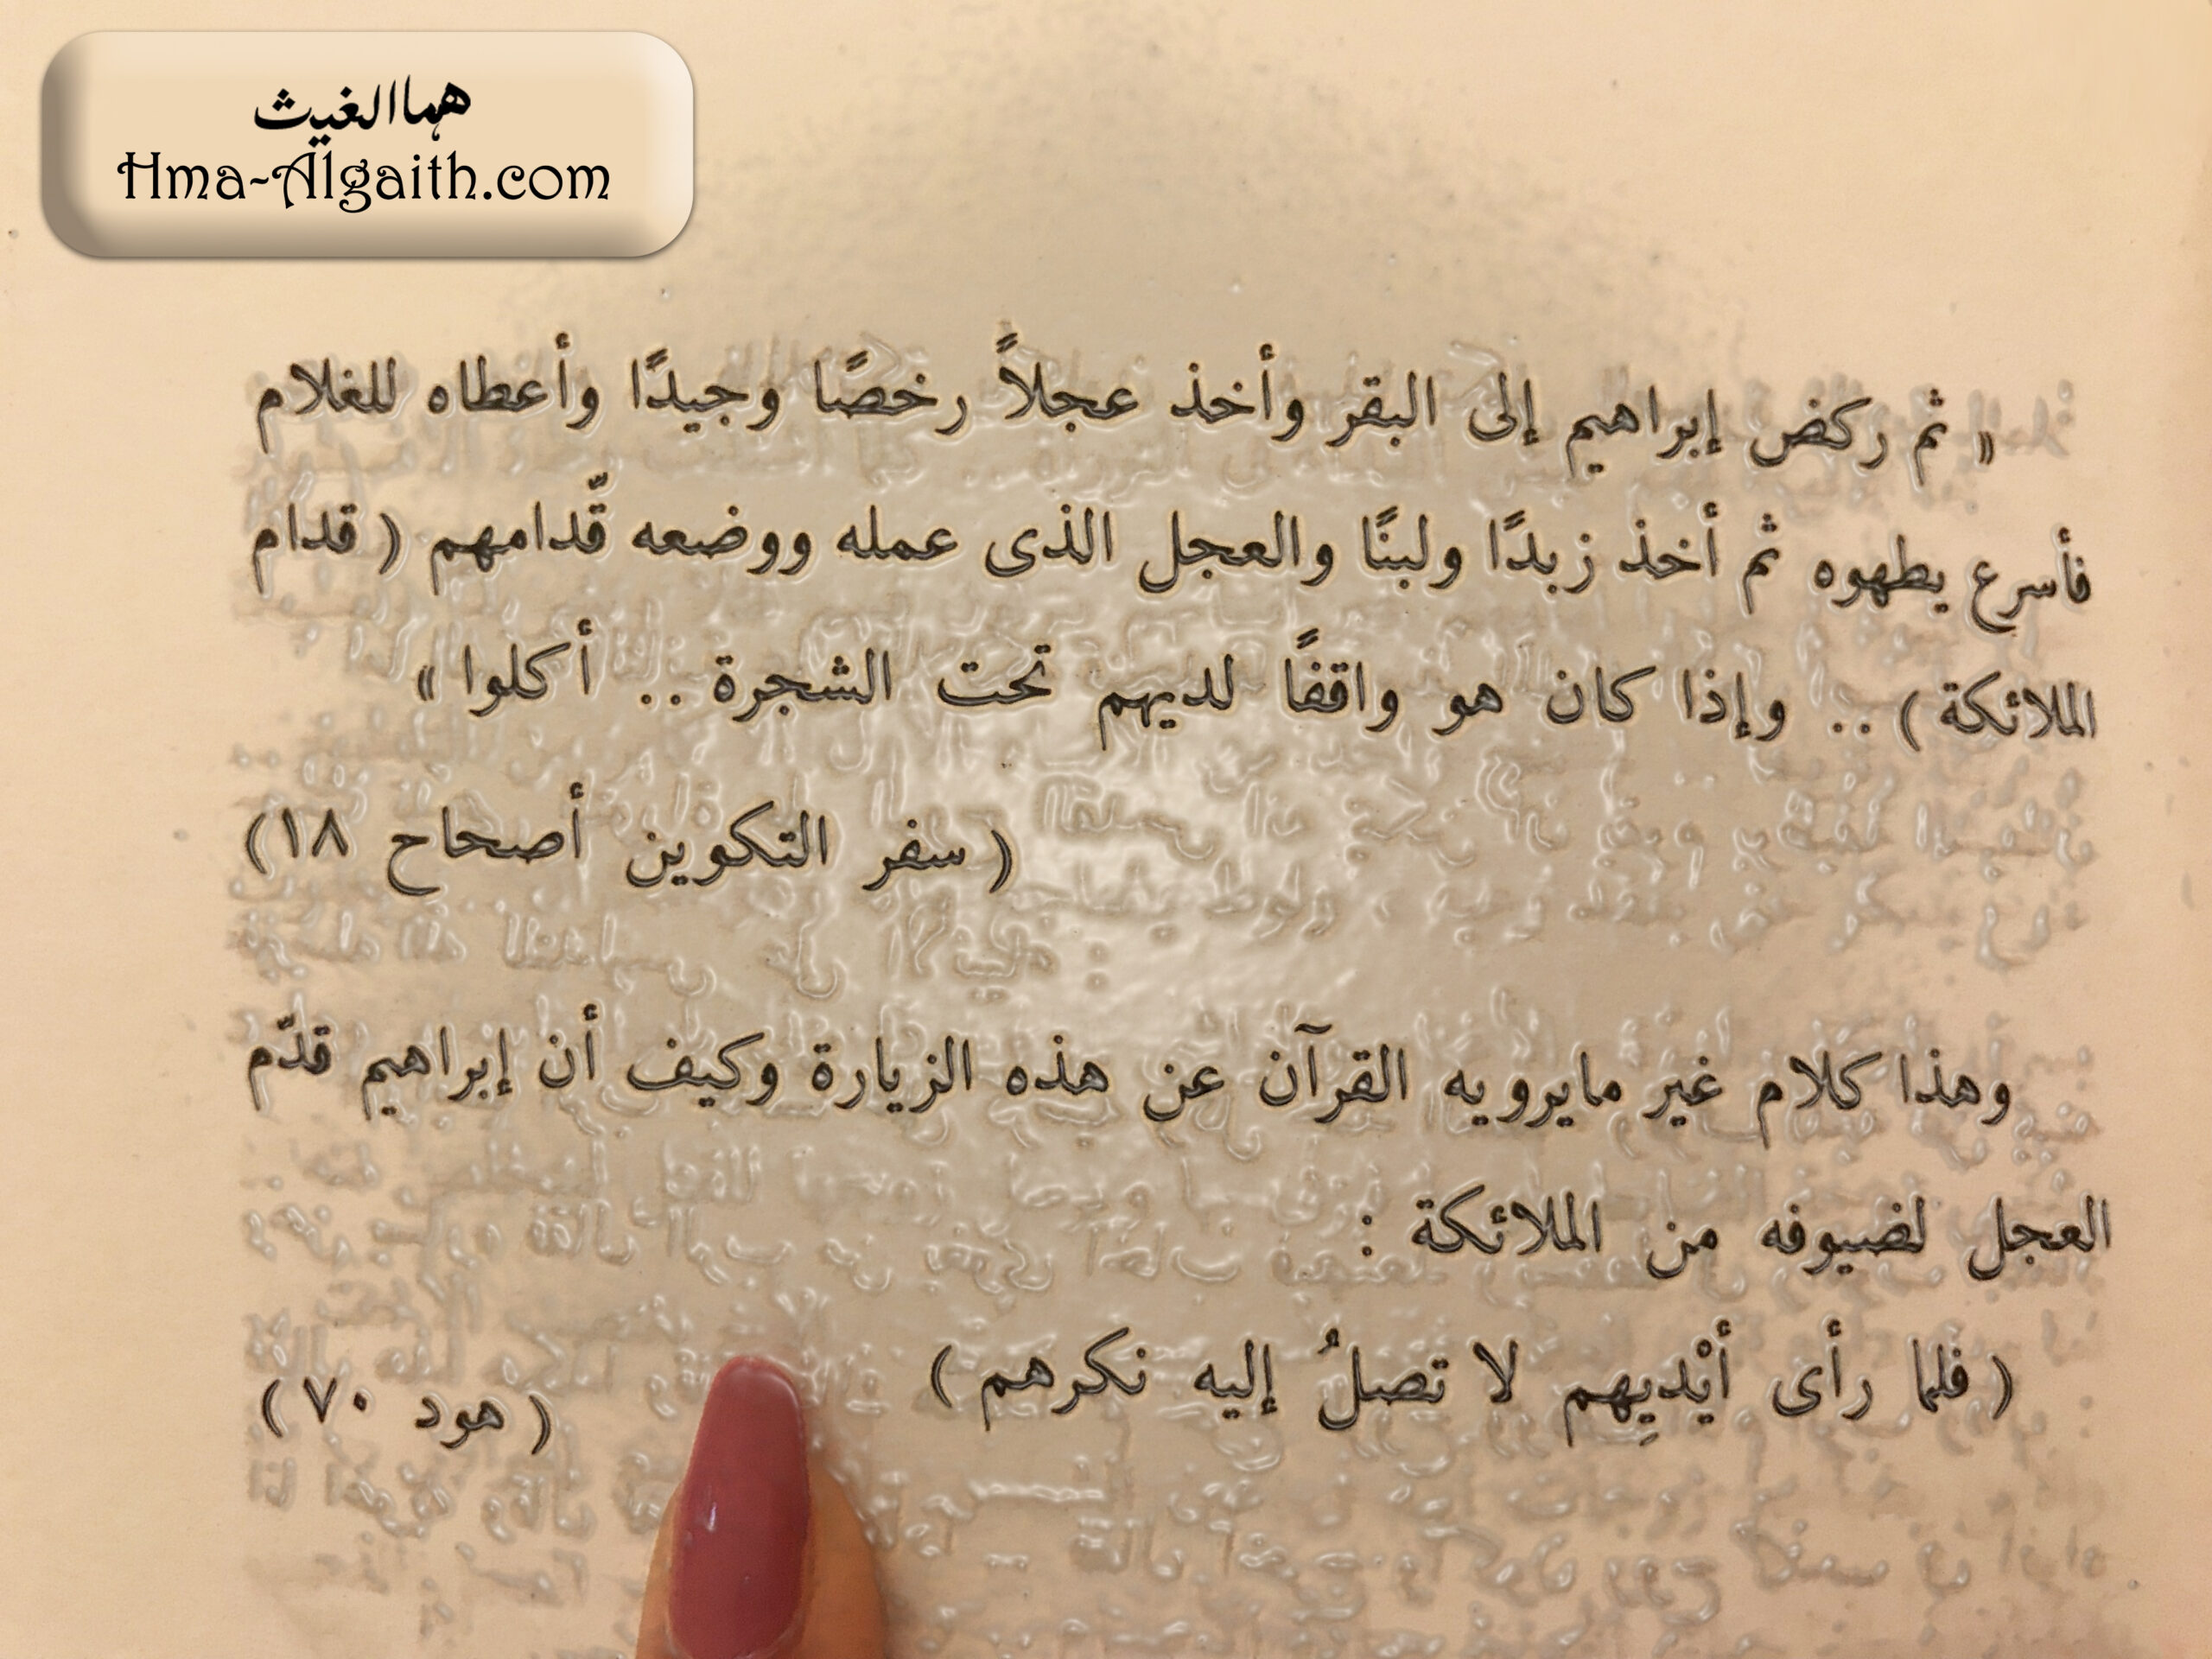 هما الغيث
Hma-Algaith.com
« ثم ركض إبراهيم إلى البقر وأخذ عجلاً رخصًا وجيدًا وأعطاه للغلام
فأسرع يطهوه ثم أخذ زبدًا ولبنًا والعجل الذى عمله ووضعه قّدامهم ( قدام
الملائكة ) .. وإذا كان هو واقفًا لديهم تحت الشجرة .. أكلوا »
( سفر التكوين أصحاح ١٨)
وهذا كلام غير مايرويه القرآن عن هذه الزيارة وكيف أن إبراهيم قدّم
العجل لضيوفه من الملائكة :
( فلما رأى أيْديهِم لا تصلُ إليه نكرهم )
( هود ٧٠ )